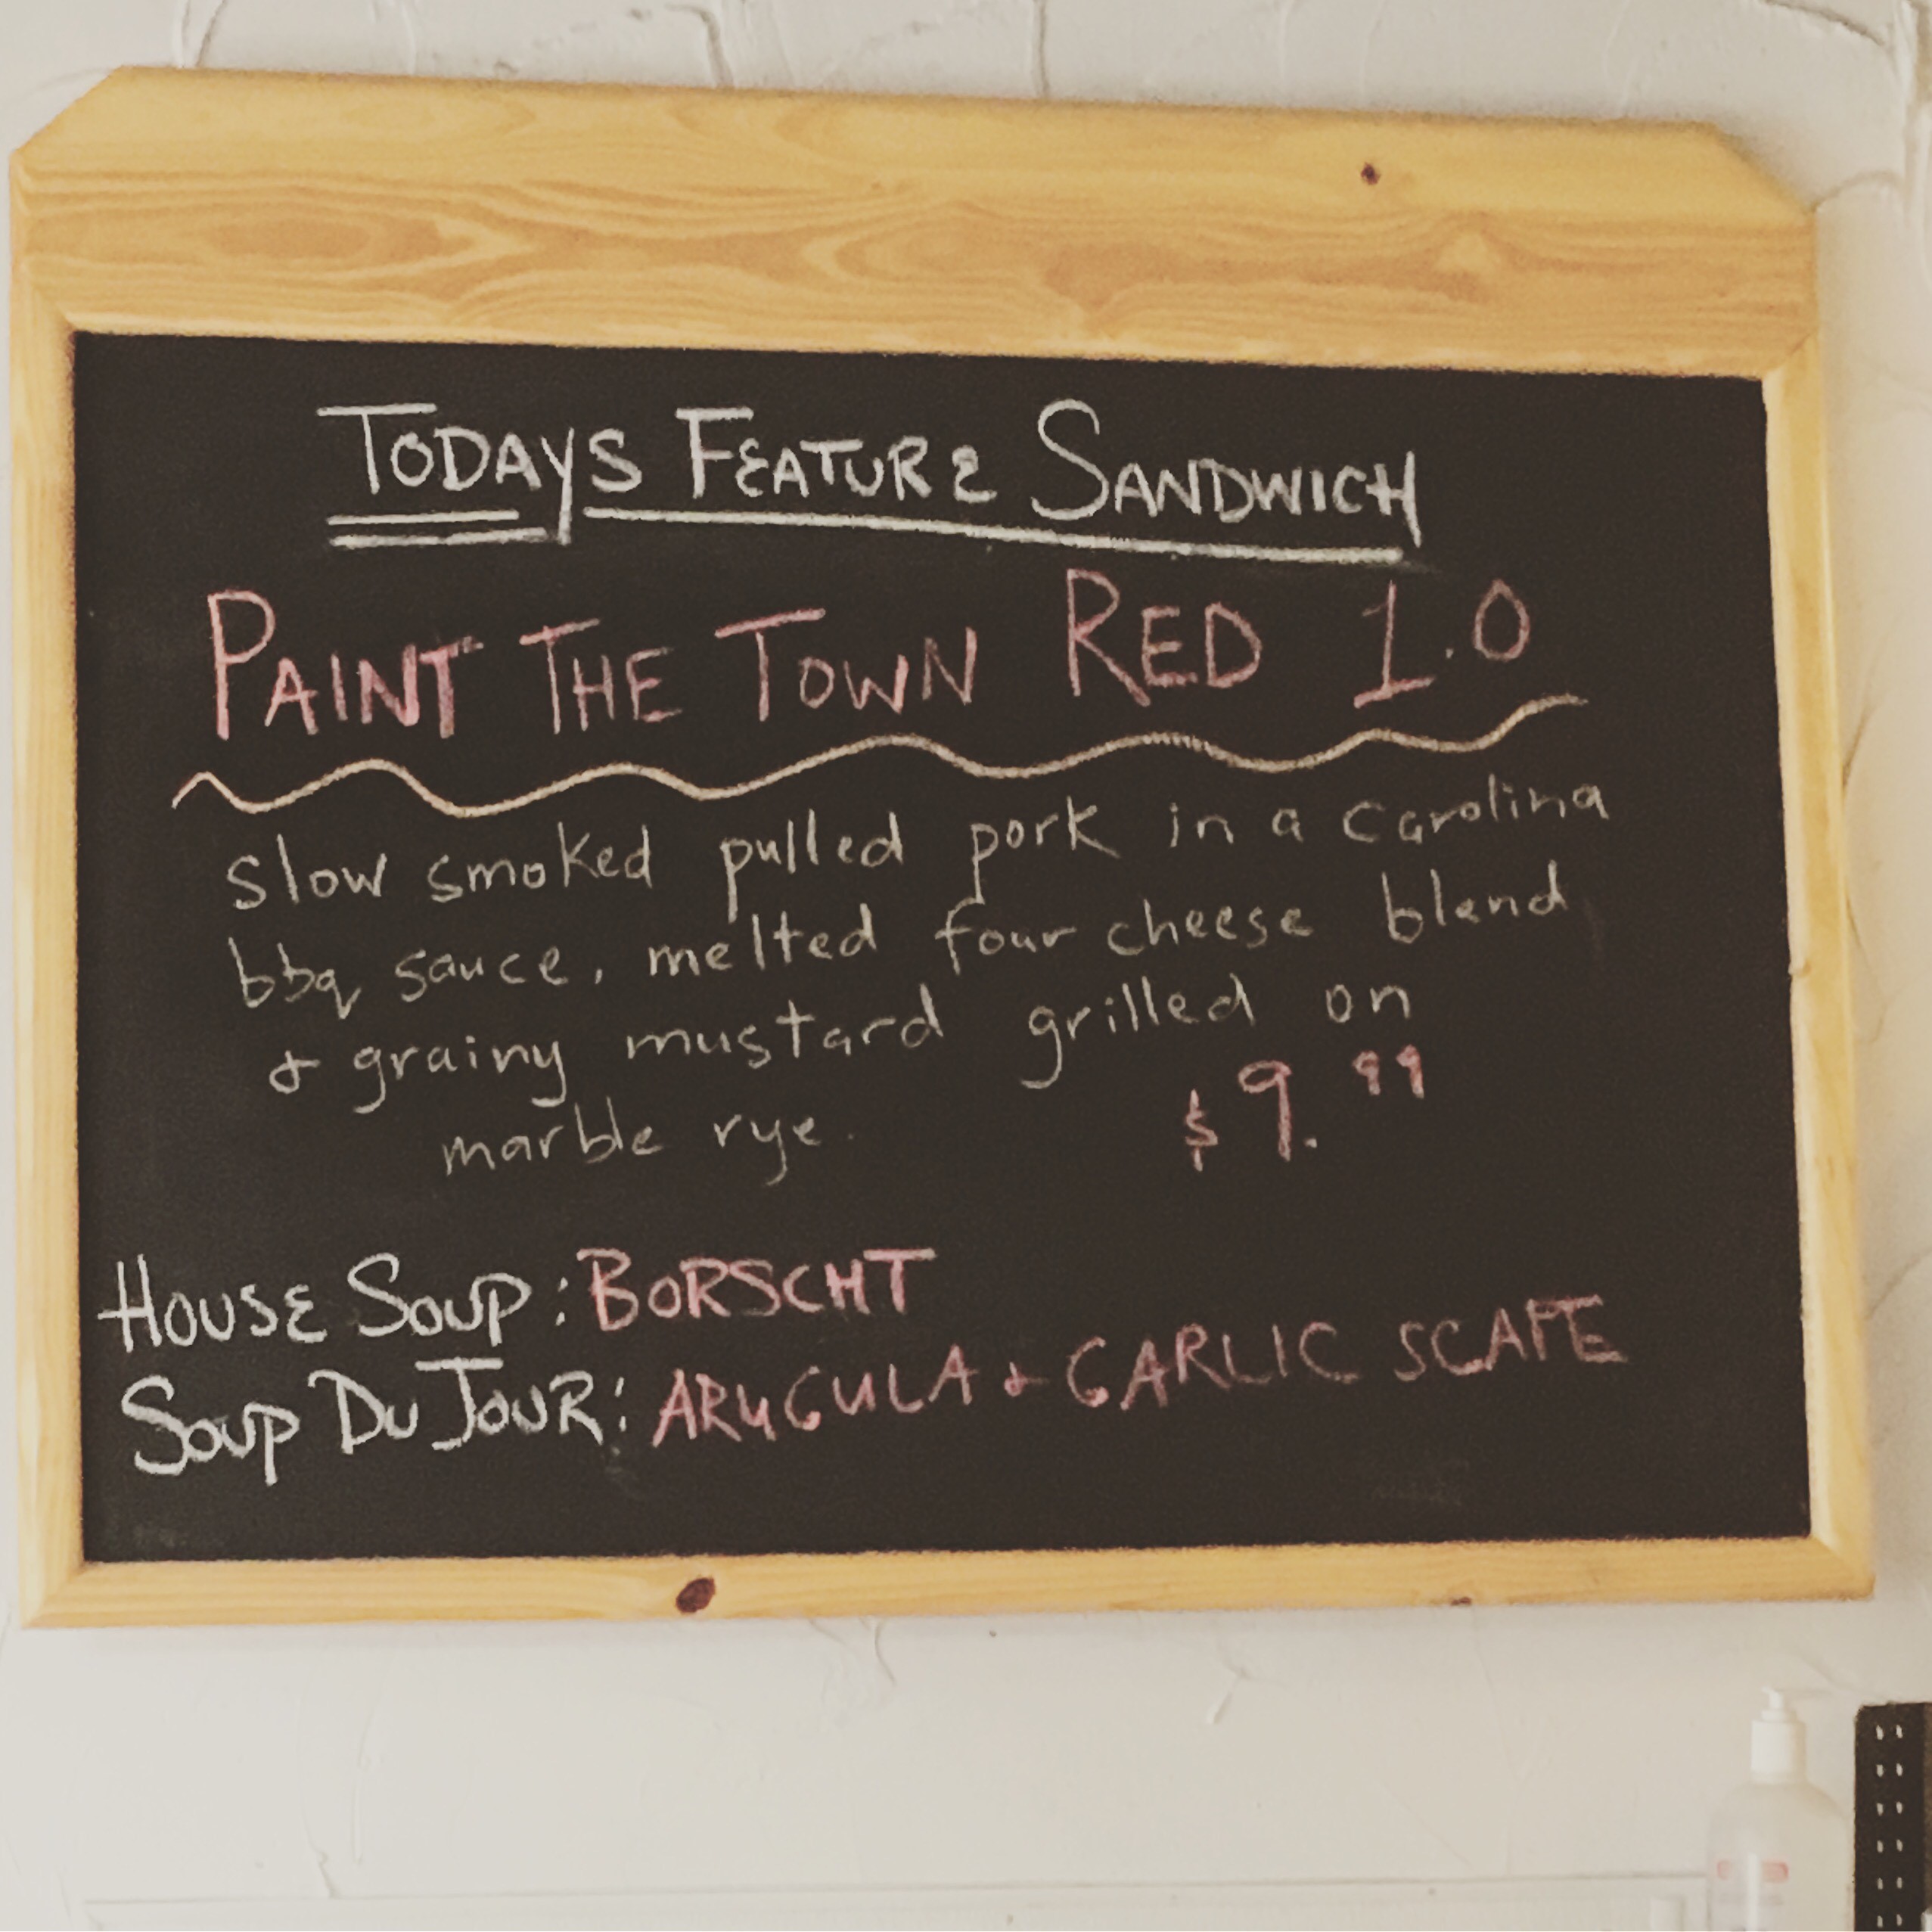 TODAYS FEATURE SANDWICH
PAINT THE TOWN RED 1.0
slow smoked pulled pork in a carolina
bbq sauce, melted four cheese blend
& grainy mustard grilled on
marble rye.
$9.99
HOUSE SOUP: BORSCHT
SOUP DU JOUR: ARUGULA & GARLIC SCAPE